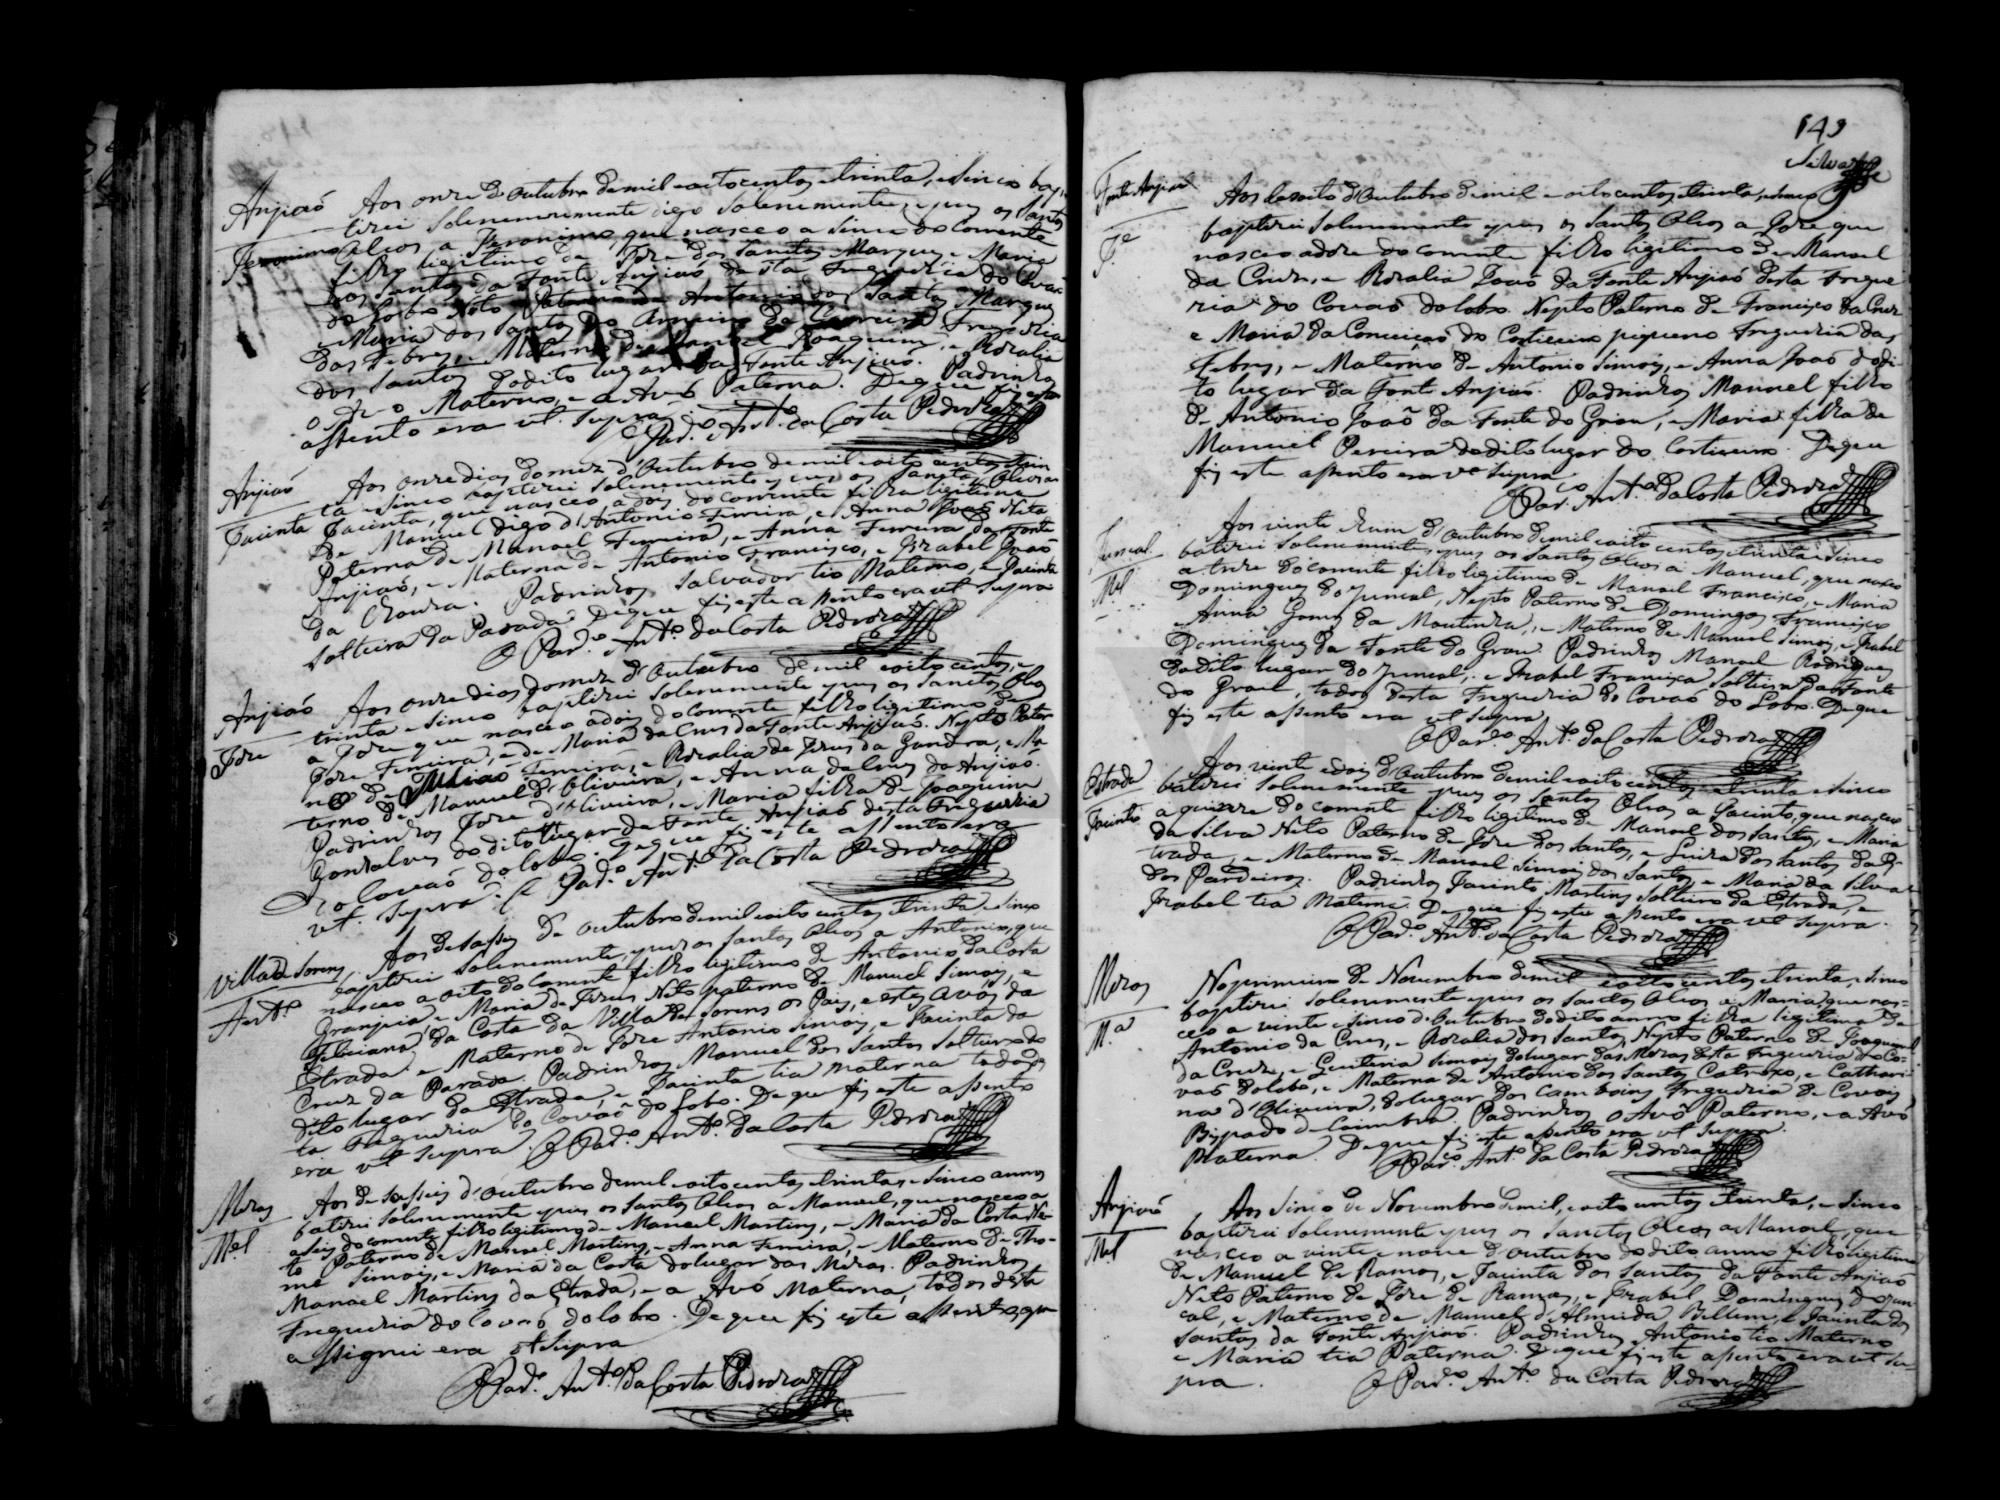 Anjiaõ
Jeronimo
Aos onze d'Outubro de mil e oito centos e trinta, e sinco bap-
tizei solenemente digo solenemente, e puz os Santos
Oleos a Jeronimo, que nasceo a sinco do Corrente
filho legitimo de Joze dos Santos Marques, e Maria
dos Santos da Fonte Anjiaõ desta Freguezia do Covaõ
do Lobo Neto Paterno de Antonio dos Santos Marques
e Maria dos Santos do Arneiro da Freguezia
das Febres, e Materno de Manoel Joaquim, e Rozalia
dos Santos do dito lugar da Fonte Anjiaõ. Padrinhos
o Avo Materno, e a Avó Paterna. De que fiz este
assento era ut supra. O Pad.e Ant.o da Costa Pedroza
Anjiaõ
Jacinta
Aos onze dias do mez d'Outubro de mil e oito centos e trin-
ta e sinco baptizei solenemente e puz os Santos Oleos a
Jacinta, que nasceo a dois do corrente filha legitima
de Manuel digo d'Antonio Ferreira, e Anna Joaõ Neta
Paterna de Manoel Ferreira, e Anna Ferreira da Fonte
Anjiaõ, e Materna de Antonio Francisco, e Izabel Joaõ
da Choura. Padrinhos Salvador tio Materno, e Jacinta
solteira da Parada De que fiz este assento era ut supra
O Pad.e Ant.o da Costa Pedroza
Anjiaõ
Joze
Aos onze dias do mez d'Outubro de mil e oito centos, e
trinta e sinco baptizei solenemente e puz os Sanctos Oleos
a Joze que nasceo a dois do corrente filho legitimo de
Joze Ferreira, e de Maria da Crus da Fonte Anjiaõ. Nepto Pater
no de Juliaõ Ferreira, e Rozalia de Jezus da Gandra, e Ma
terno de Manuel d'Oliveira, e Anna da Crus do Anjiaõ.
Padrinhos Joze d'Oliveira, e Maria filha de Joaquim
Gonsalves do dito Lugar da Fonte Anjiaõ desta Freguezia
do Covaõ do lobo. De que fiz este assento era
ut supra. O Pad.e Ant.o da Costa Pedroza
Villa de Sorens
Ant.o
Aos desaseis de outubro de mil e oito centos e trinta e sinco
baptizei solenemente, e puz os Santos Oleos a Antonio, que
nasceo a oito do Corrente filho legitimo de Antonio da Costa
Granjeia, e Maria de Jezus Neto paterno de Manuel Simois, e
Feliciana da Costa da Villa de Sorens os Pays, e estes Avós da
Estrada. e Materno de Joze Antonio Simois, e Jacinta da
Cruz da Parada. Padrinhos Manuel dos Santos Solteiro do
dito lugar da Estrada, e Jacinta tia materna todos des
ta Freguezia do Covaõ do Lobo. De que fiz este assento
era ut supra. O Pad.e Ant.o da Costa Pedroza
Miras
M.el
Aos desaseis d'Outubro de mil e oito centos e trinta e sinco annos
batizei solenemente e puz os Santos Oleos a Manuel, que nasceo a
a seis do corrente filho legitimo de Manuel Martins, e Maria da Costa Ne-
to Paterno de Manuel Martins, e Anna Ferreira, e Materno de Tho-
mé Simois, e Maria da Costa do lugar das Miras. Padrinhos
Manoel Martins da Estrada, e a Avó Materna, todos desta
Freguezia do Covaõ do lobo. De que fiz este assento que
assignei era ut supra
O Pad.e Ant.o da Costa Pedroza
149
Silva
Fonte Anjiaõ
J.e
Aos dezoito d'Outubro de mil e oito centos e trinta, e sinco
baptizei solenemente e puz os Santos Oleos a Joze que
nasceo a doze do corrente filho legitimo de Manoel
da Cruz, e Rozalia Joaõ da Fonte Anjiaõ desta Fregue
zia do Covaõ do lobo. Nepto Paterno de Francisco da Cruz
e Maria da Conceiçaõ do Corticeiro piqueno Freguezia das
Febres, e Materno de Antonio Simois, e Anna Joaõ do di-
to lugar da Fonte Anjiaõ. Padrinhos Manuel filho
de Antonio Joaõ da Fonte do Grou, e Maria filha de
Manuel Pereira do dito lugar do Corticeiro. De que
fiz este assento era ut supra
O Pad.e Ant.o da Costa Pedroza
Juncal.
M.el
Aos vinte e hum d'Outubro de mil e oito centos, e trinta e sinco
batizei solenemente, e puz os Santos Oleos a Manuel, que nasceo
a treze do corrente filho legitimo de Manoel Francisco, e Maria
Domingues do Juncal, Nepto Paterno de Domingos Francisco
e Anna Gomes da Moutinha, e Materno de Manuel Simois, e Izabel
Domingues da Fonte do Grou. Padrinhos Manoel Rodrigues
do dito lugar do Juncal, e Izabel Francisca Solteira da Fonte
do Grou, todos desta Freguezia do Covaõ do Lobo. De que
fiz este assento era ut supra
O Pad.e Ant.o da Costa Pedroza
Estrada
Jacinto
Aos vinte e dois d'Outubro de mil e oito centos, e trinta e sinco
batizei solenemente e puz os Santos Oleos a Jacinto, que nasceo
a quinze do corrente filho legitimo de Manoel dos Santos, e Maria
da Silva Neto Paterno de Joze dos Santos, e Luiza dos Santos da Es-
trada, e Materno de Manuel Simois dos Santos, e Maria da Silva
dos Pardeiros. Padrinhos Jacinto Martins solteiro da Estrada, e
Izabel tia Materna. De que fiz este assento era ut supra.
O Pad.e Ant.o da Costa Pedroza
Miras
M.a
No primeiro de Novembro de mil e oito centos e trinta, e sinco
baptizei solenemente e puz os Santos Oleos a Maria, que nas-
ceo a vinte e sinco d'Outubro do dito anno filha legitima de
Antonio da Crus, e Rozalia dos Santos, Nepta Paterna de Joaquim
da Cruz, e Quiteria Simois do lugar das Miras desta Freguezia do Co-
vaõ do lobo, e Materna de Antonio dos Santos Catroxo, e Cathari-
na d'Oliveira, do lugar dos Camboins Freguezia de Covois
Bispado de Coimbra. Padrinhos o Avô Paterno, e a Avó
Materna. De que fiz este assento era ut supra.
O Pad.e Ant.o da Costa Pedroza
Anjiaõ
M.el
Aos sinco de Novembro de mil, e oito centos e trinta, e sinco
baptizei solenemente e puz os Sanctos Oleos a Manoel, que
nasceo a vinte e nove d'Outubro do dito anno filho legitimo
de Manuel de Ramos, e Jacinta dos Santos da Fonte Anjiaõ
Neto Paterno de Joze de Ramos, e Izabel Domingues do Jun-
cal, e Materno de Manuel d'Almeida Billim, e Jacinta dos
Santos da Fonte Anjiaõ. Padrinhos Antonio tio Materno
e Maria tia Paterna. De que fiz este assento era ut su-
pra. O Pad.e Ant.o da Costa Pedroza